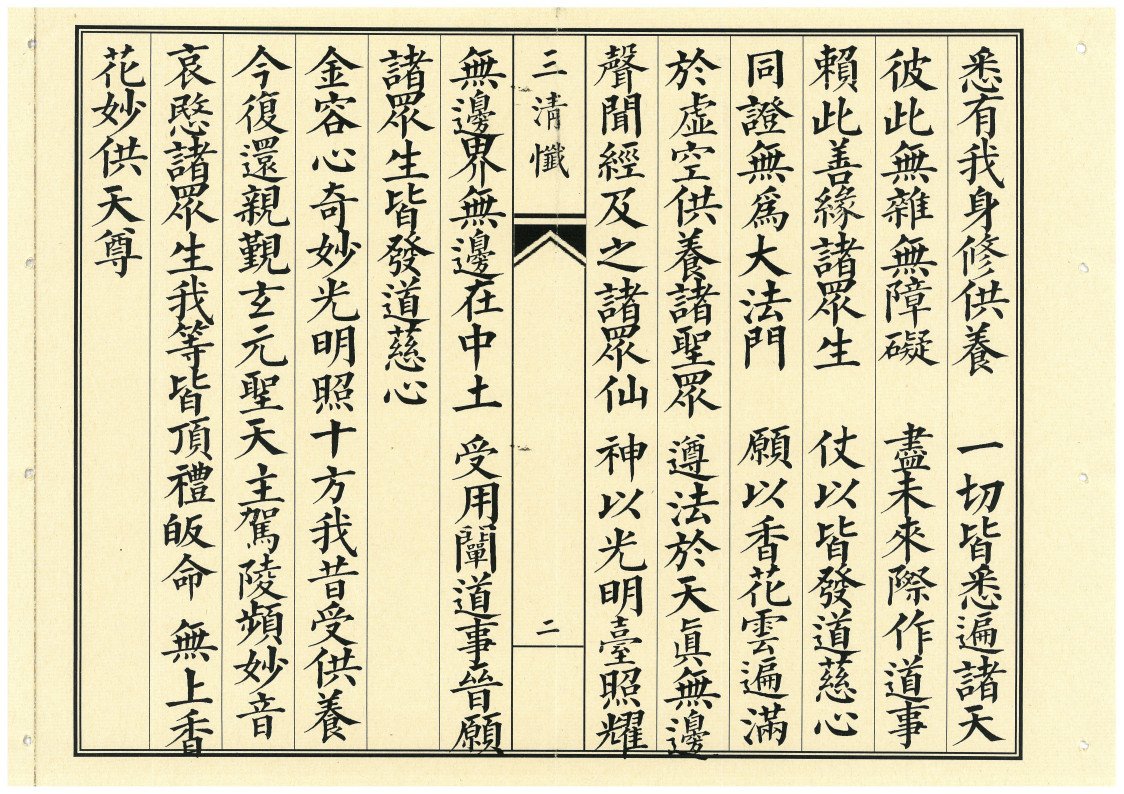 悉有我身修供養　一切皆悉遍諸天
彼此無雜無障礙　盡未來際作道事
賴此善緣諸眾生　仗以皆發道慈心
同證無爲大法門　願以香花雲遍滿
於虛空供養諸聖眾　遵法於天眞無邊
聲聞經及之諸眾仙　神以光明臺照耀
三清懺
二
無邊界無邊在中土　受用闡道事晉願
諸眾生皆發道慈心
金容心奇妙光明照十方我昔受供養
今復還親覲玄元聖天主駕陵頻妙音
哀愍諸眾生我等皆頂禮皈命　無上香
花妙供天尊